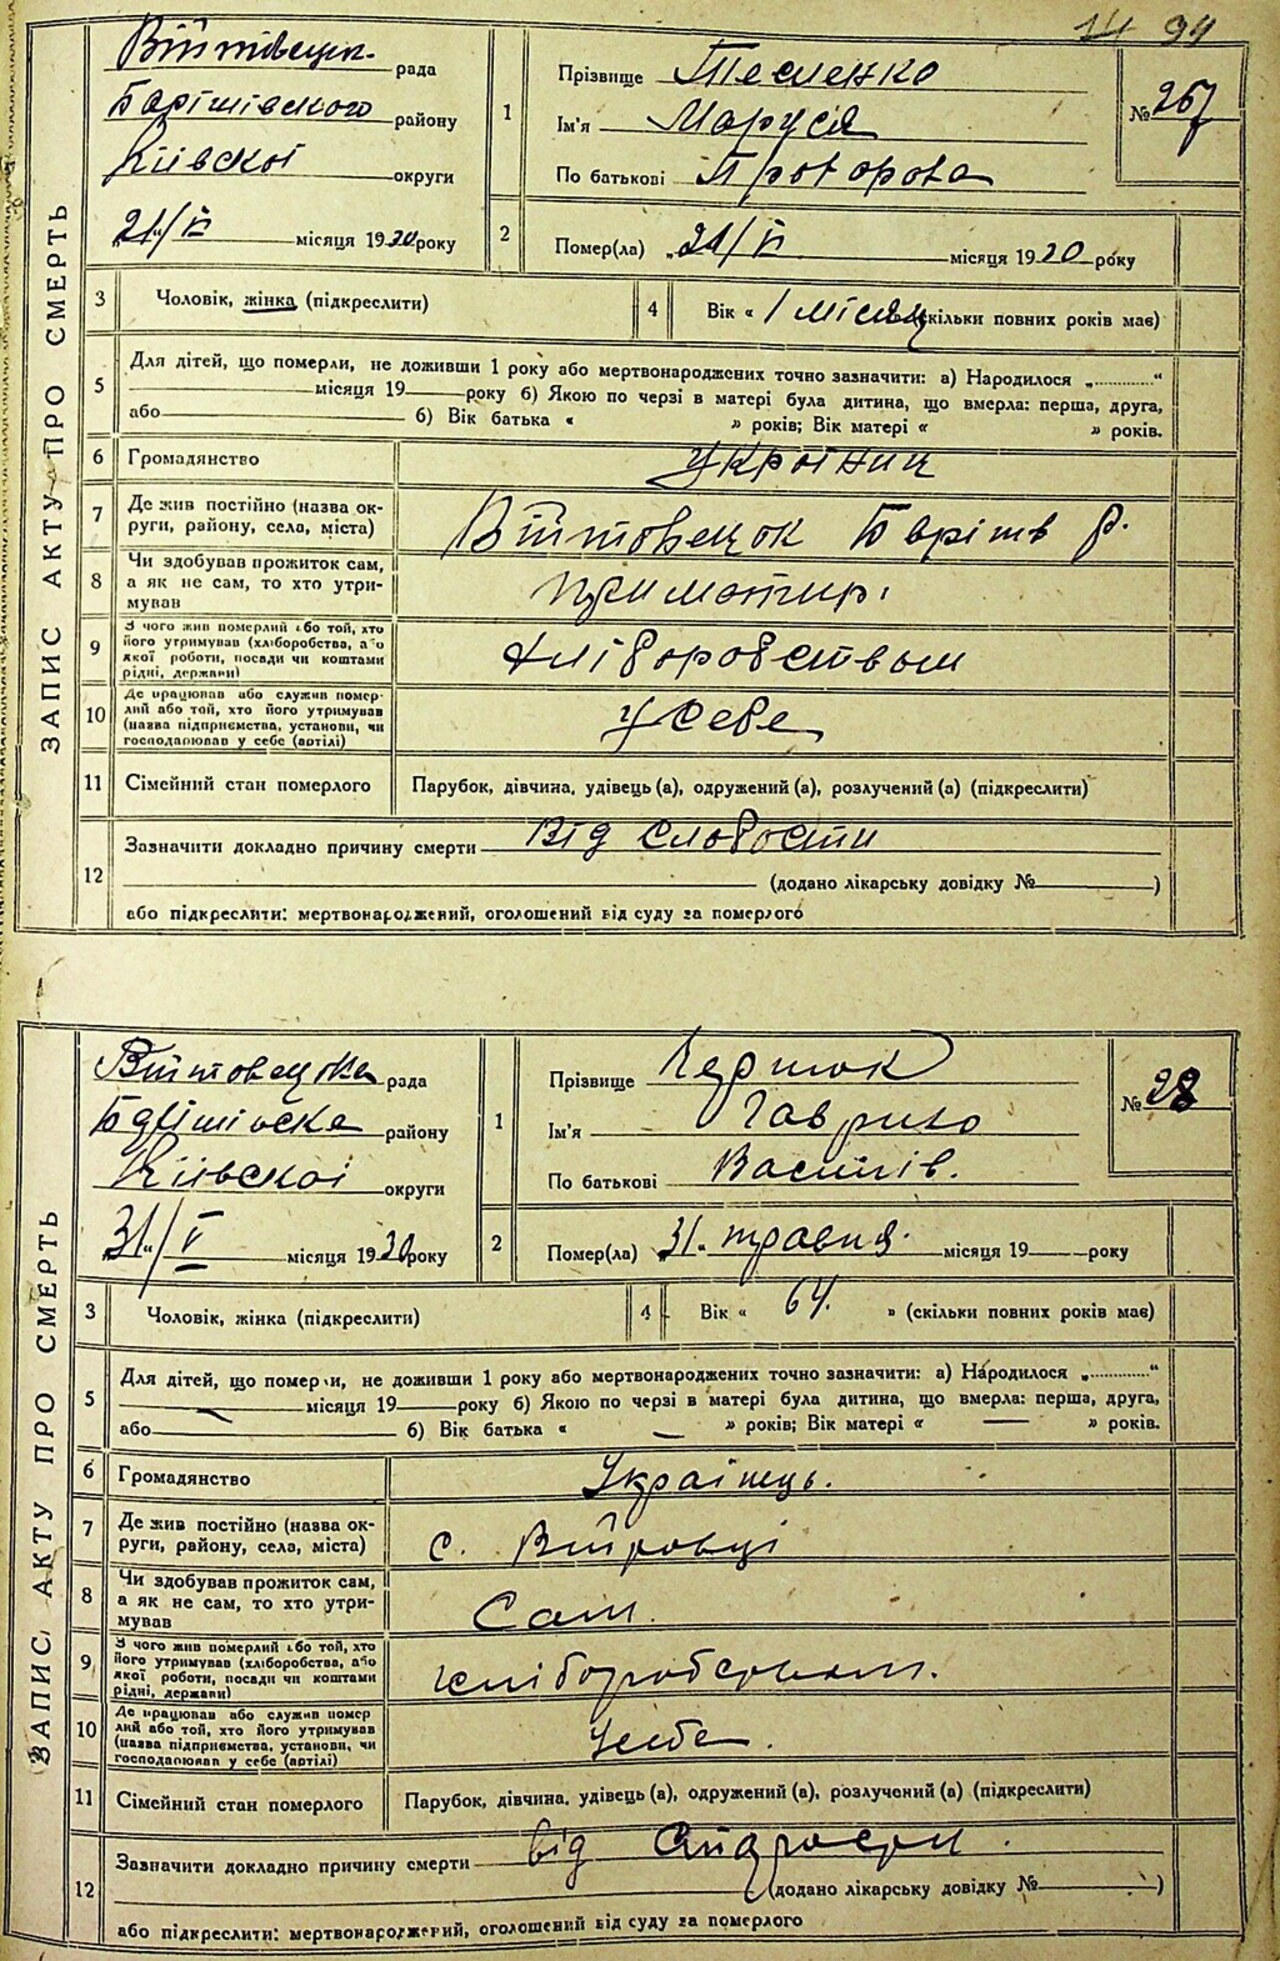 94
ЗАПИС АКТУ ПРО СМЕРТЬ
Війтовецк. рада
Барішівского району
Київскоі округи
21/ місяця 1930 року
1 Прізвище Тесленко
Ім'я Маруся
По батькові Прохорова
№ 267
2 Помер(ла) „21/ місяця 1930 року
3 Чоловік, жінка (підкреслити)
4 Вік « 1 місяц (скільки повних років має)
5 Для дітей, що померли, не доживши 1 року або мертвонароджених точно зазначити: а) Народилося „............“
місяця 19 року б) Якою по черзі в матері була дитина, що вмерла: перша, друга,
або б) Вік батька « » років; Вік матері « » років.
6 Громадянство Українц
7 Де жив постійно (назва ок-
руги, району, села, міста) Війтовецок Барішв р.
8 Чи здобував прожиток сам,
а як не сам, то хто утри-
мував при матир.
9 З чого жив померлий або той, хто
його утримував (хліборобства, або
якої роботи, посади чи коштами
рідні, держави) хліборобством
10 Де працював або служив помер-
лий або той, хто його утримував
(назва підприємства, установи, чи
господарював у себе (артілі) у себе
11 Сімейний стан померлого Парубок, дівчина, удівець (а), одружений (а), розлучений (а) (підкреслити)
12 Зазначити докладно причину смерти від слабости
(додано лікарську довідку № )
або підкреслити: мертвонароджений, оголошений від суду за померлого
ЗАПИС АКТУ ПРО СМЕРТЬ
Війтовецка рада
району
Київскоі округи
„31“/V місяця 1930 року
1 Прізвище
Ім'я Гаврило
По батькові Василів.
№ 28
2 Помер(ла) „31“ травня. місяця 19 року
3 Чоловік, жінка (підкреслити)
4 Вік « 64. » (скільки повних років має)
5 Для дітей, що померли, не доживши 1 року або мертвонароджених точно зазначити: а) Народилося „............“
— місяця 19 року б) Якою по черзі в матері була дитина, що вмерла: перша, друга,
або б) Вік батька « — » років; Вік матері « — » років.
6 Громадянство Українець.
7 Де жив постійно (назва ок-
руги, району, села, міста) с. Війтовці
8 Чи здобував прожиток сам,
а як не сам, то хто утри-
мував Сам.
9 З чого жив померлий або той, хто
його утримував (хліборобства, або
якої роботи, посади чи коштами
рідні, держави) хліборобством.
10 Де працював або служив помер
лий або той, хто його утримував
(назва підприємства, установи, чи
господарював у себе (артілі) Усебе.
11 Сімейний стан померлого Парубок, дівчина, удівець (а), одружений (а), розлучений (а) (підкреслити)
12 Зазначити докладно причину смерти від
(додано лікарську довідку № )
або підкреслити: мертвонароджений, оголошений від суду за померлого